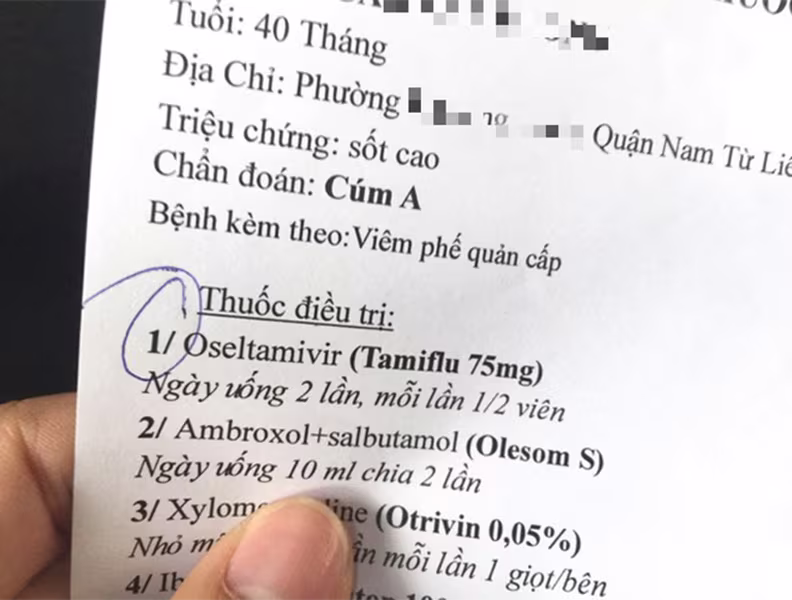 Tuổi: 40 Tháng
Địa Chỉ: Phường Quận Nam Từ
Triệu chứng: sốt cao
Chẩn đoán: Cúm A
Bệnh kèm theo:Viêm phế quản cấp
Thuốc điều trị:
1/ Oseltamivir (Tamiflu 75mg)
Ngày uống 2 lần, mỗi lần 1/2 viên
2/ Ambroxol+salbutamol (Olesom S)
Ngày uống 10 ml chia 2 lần
3/ (Otrivin 0,05%)
Nhỏ mỗi lần 1 giọt/bên
4/